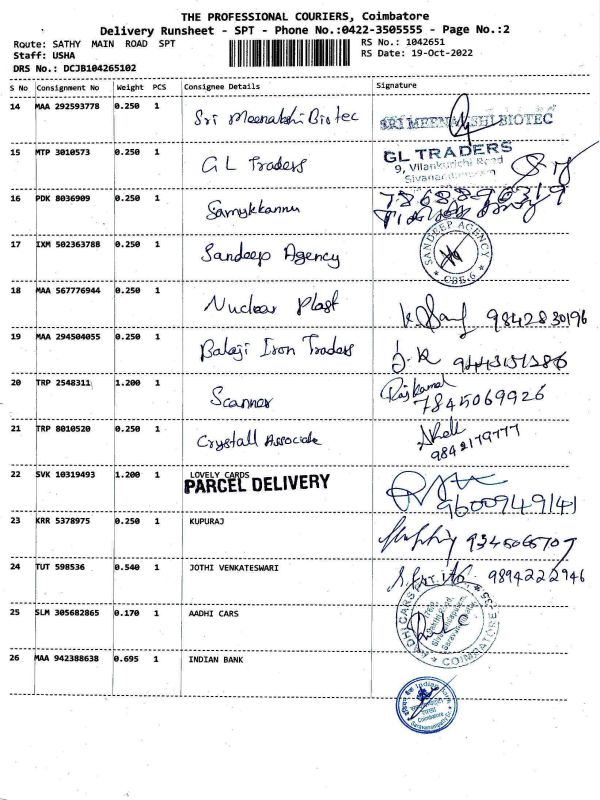 THE PROFESSIONAL COURIERS, Coimbatore
Delivery Runsheet - SPT - Phone No.:0422-3505555 - Page No.:2
Route: SATHY MAIN ROAD SPT
RS No.: 1042651
Staff: USHA
RS Date: 19-Oct-2022
DRS No.: DCJB104265102
S No Consignment No Weight PCS Consignee Details Signature
14 MAA 292593778 0.250 1 Sri Meenakshi Biotec SRI MEENAKSHI BIOTEC
15 MTP 3010573 0.250 1 G L Traders GL TRADERS
9, Vilankurichi Road
Sivanandapuram
16 PDK 8036909 0.250 1 Samykkannu
17 IXM 502363788 0.250 1 Sandeep Agency SANDEEP AGENCY CBE-6
18 MAA 567776944 0.250 1 Nuclear Plast 9842830196
19 MAA 294504055 0.250 1 Balaji Iron Traders
20 TRP 2548311 1.200 1 Scanner Rajkamal
7845069926
21 TRP 8010520 0.250 1 Crystall Associate
9842179777
22 SVK 10319493 1.200 1 LOVELY CARDS
PARCEL DELIVERY
9600949141
23 KRR 5378975 0.250 1 KUPURAJ 9345065707
24 TUT 598536 0.540 1 JOTHI VENKATESWARI 9894222946
25 SLM 305682865 0.170 1 AADHI CARS AADHI CARS COIMBATORE
26 MAA 942388638 0.695 1 INDIAN BANK